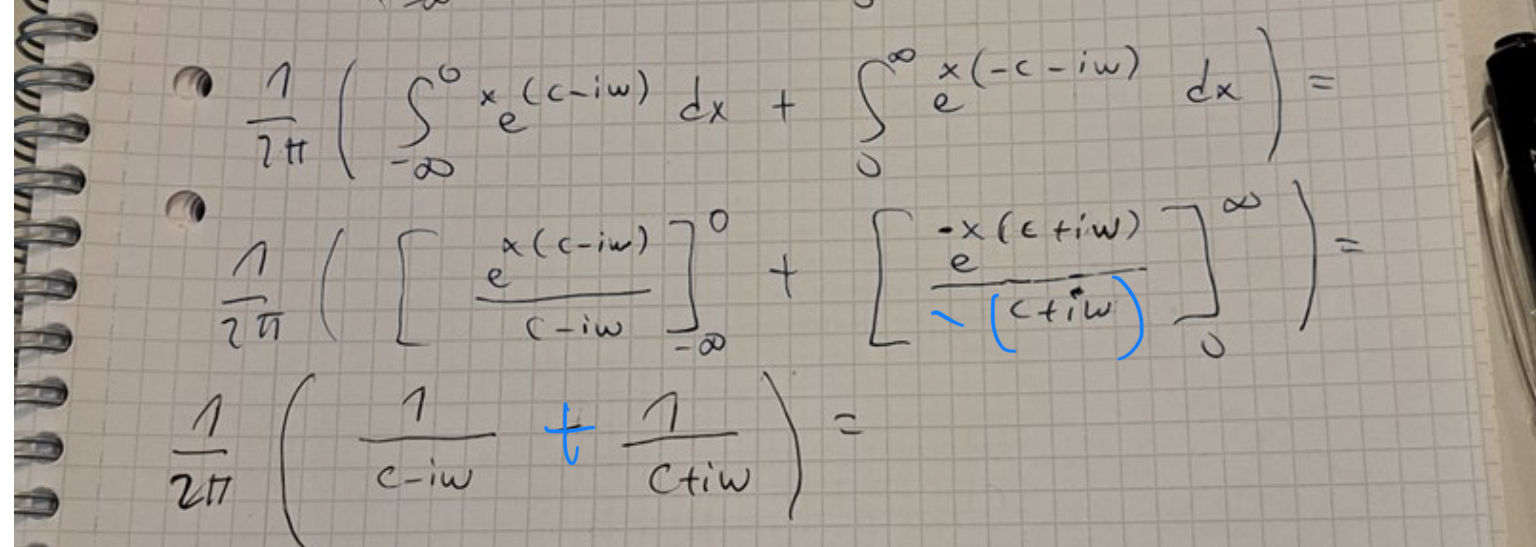 1/2π ( ∫_{-∞}^{0} e^{x(c-iw)} dx + ∫_{0}^{∞} e^{x(-c-iw)} dx ) =
1/2π ( [ e^{x(c-iw)} / c-iw ]_{-∞}^{0} + [ e^{-x(c+iw)} / -(c+iw) ]_{0}^{∞} ) =
1/2π ( 1/c-iw + 1/c+iw ) =